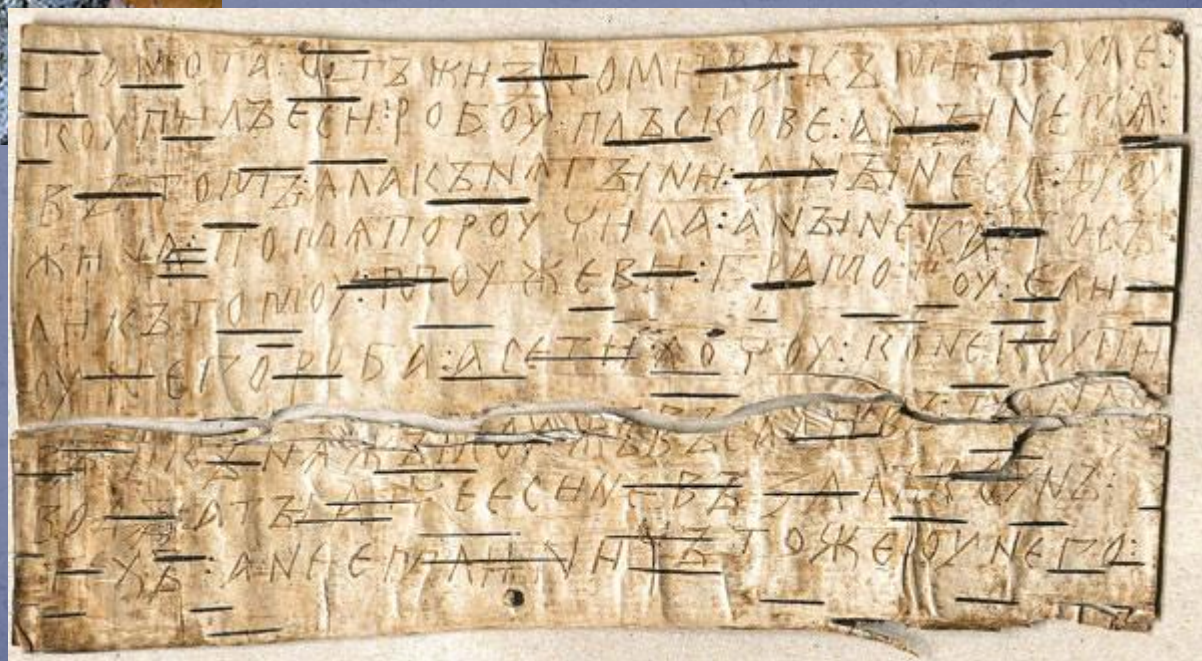 ГРАМОТА : ѠТЪ ЖИЗНОМИРА : КЪ МИКОУЛЕ :
КОУПИЛЪ ЕСИ : РОБОУ : ПЛЪСКОВЕ : А НЪІНЕ МѦ :
ВЪ ТОМЪ : АЛА КЪНѦГЪІНИ : А НЪІНЕ СѦ ДРОУ
ЖИНА : ПО МѦ ПОРОУЧИЛА : А НЪІНЕ КА : ПОСЪ
ЛИ КЪ ТОМОУ : МОУЖЕВИ : ГРАМОТОУ : Е ЛИ
ОУ НЕГО РОБА : А СЕ ТИ ХОЧОУ : КОНЕ КОУПИ
ВЪ : И КЪНѦЖЪ МОУЖЪ ВЪСАДИВЪ : ТА НА СЪ
ВОДЪІ : А ТЪІ АТЧЕ ЕСИ НЕ ВЪЗАЛЪ КОУНЪ :
ТЕХЪ : А НЕ ЕМЛИ : НИЧЪТО ЖЕ ОУ НЕГО :